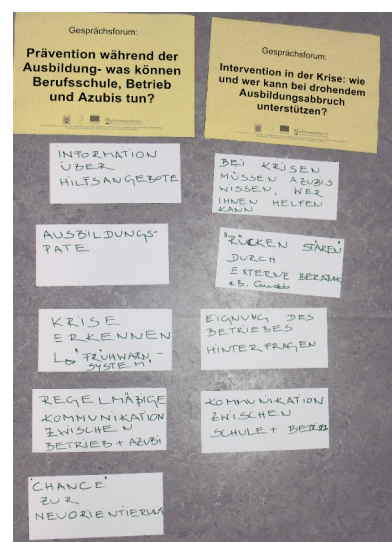 Gesprächsforum:
Prävention während der
Ausbildung- was können
Berufsschule, Betrieb
und Azubis tun?
INFORMATION
ÜBER
HILFSANGEBOTE
AUSBILDUNGS-
PATE
KRISE
ERKENNEN
↳ "FRÜHWARN-
SYSTEM"
REGELMÄẞIGE
KOMMUNIKATION
ZWISCHEN
BETRIEB + AZUBI
"CHANCE"
ZUR
NEUORIENTIERUNG
Gesprächsforum:
Intervention in der Krise: wie
und wer kann bei drohendem
Ausbildungsabbruch
unterstützen?
BEI KRISEN
MÜSSEN AZUBIS
WISSEN, WER
IHNEN HELFEN
KANN
"RÜCKEN STÄREN"
DURCH
EXTERNE BERATUNG
z.B.
EIGNUNG DES
BETRIEBES
HINTERFRAGEN
KOMMUNIKATION
ZWISCHEN
SCHULE + BETRIEB